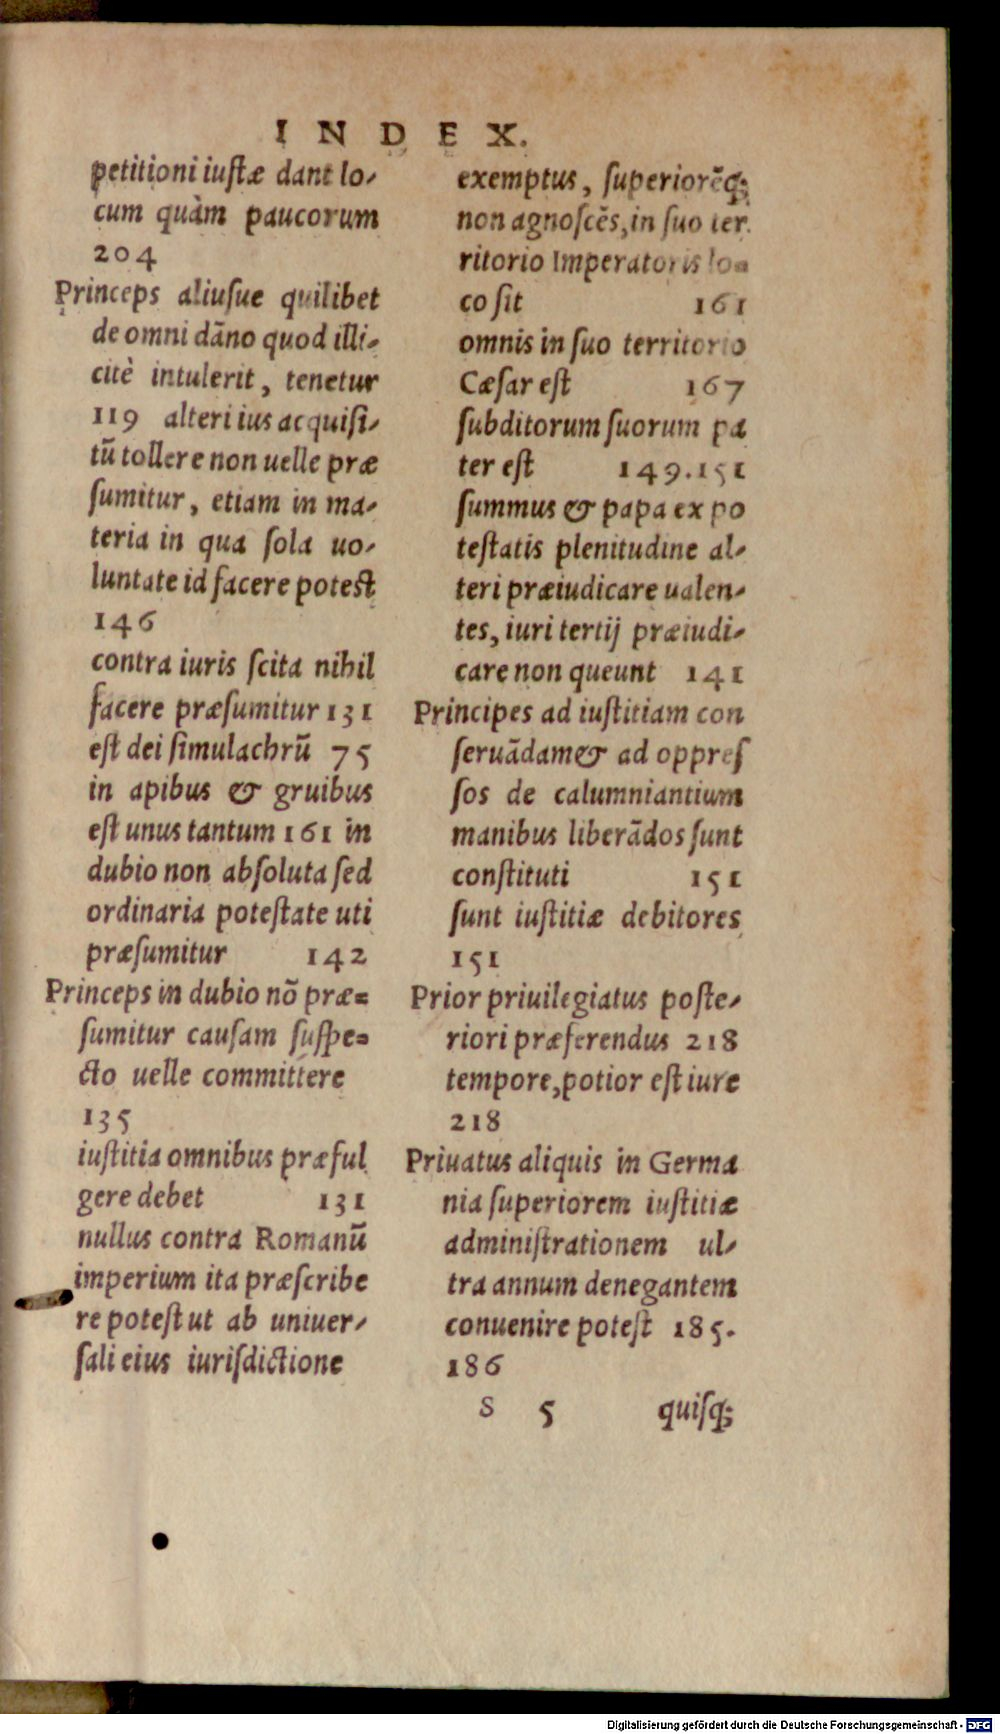 INDEX.
petitioni iustæ dant lo-
cum quàm paucorum
204
Princeps aliusue quilibet
de omni dāno quod illi-
citè intulerit, tenetur
119 alteri ius acquisi-
tū tollere non uelle præ
sumitur, etiam in ma-
teria in qua sola uo-
luntate id facere potest
146
contra iuris scita nihil
facere præsumitur 131
est dei simulachrū 75
in apibus & gruibus
est unus tantum 161 in
dubio non absoluta sed
ordinaria potestate uti
præsumitur 142
Princeps in dubio nō præ=
sumitur causam suspe=
cto uelle committere
135
iustitia omnibus præful
gere debet 131
nullus contra Romanū
imperium ita præscribe
re potest ut ab uniuer-
sali eius iurisdictione
exemptus, superiorēq;
non agnoscēs, in suo ter
ritorio Imperatoris lo=
co sit 161
omnis in suo territorio
Cæsar est 167
subditorum suorum pa
ter est 149.151
summus & papa ex po
testatis plenitudine al-
teri præiudicare ualen-
tes, iuri tertij præiudi-
care non queunt 141
Principes ad iustitiam con
seruādam & ad oppres
sos de calumniantium
manibus liberādos sunt
constituti 151
sunt iustitiæ debitores
151
Prior priuilegiatus poste-
riori præferendus 218
tempore, potior est iure
218
Priuatus aliquis in Germa
nia superiorem iustitiæ
administrationem ul-
tra annum denegantem
conuenire potest 185.
186
S 5 quisq;
Digitalisierung gefördert durch die Deutsche Forschungsgemeinschaft - DFG